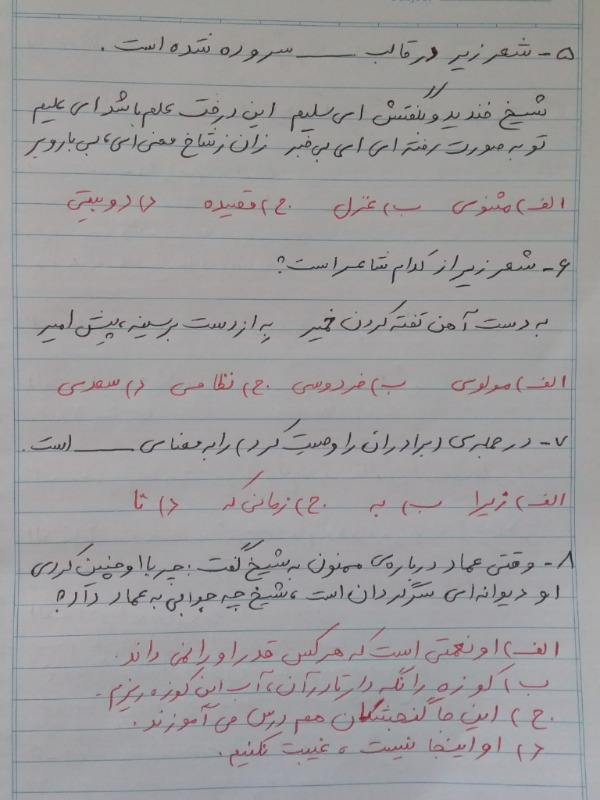 ۵- شعر زیر در قالب ــــــ سروده شده است.
شیخ خندید و گفتش ای سلیم این درخت علم باشد ای علیم
تو به صورت رفته ای ای بی خبر زان ز شاخ معنی ای، بی بار و بر
الف) مثنوی ب) غزل ج) قصیده د) دوبیتی
۶- شعر زیر از کدام شاعر است؟
به دست آهن تفته کردن خمیر به از دست بر سینه، پیش امیر
الف) مولوی ب) فردوسی ج) نظامی د) سعدی
۷- در جمله ی (برادران را وصیت کرد) را به معنای ــــــ است.
الف) زیرا ب) به ج) زمانی که د) تا
۸- وقتی عماد درباره ی ممنون به شیخ گفت: چر با او چنین کردی
او دیوانه ای سرگردان است، شیخ چه جوابی به عماد داد؟
الف) او نعمتی است که هر کس قدر او را نمی داند.
ب) کوزه را نگه دار تا در آن، آب این کوزه بریزم.
ج) این جا گنجشکان هم درس می آموزند.
د) او اینجا نیست، غیبت نکنیم.